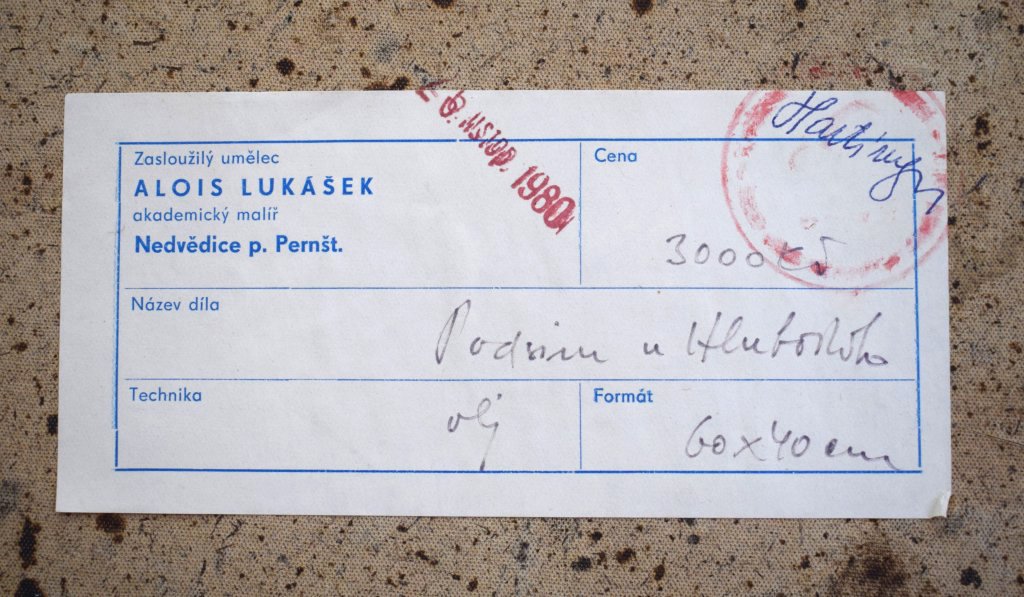 Zasloužilý umělec
ALOIS LUKÁŠEK
akademický malíř
Nedvědice p. Pernšt.
2 6. listop. 1980
Cena
3000 Kčs
Název díla
Podzim u Hlubokého
Technika
olj
Formát
60x40 cm